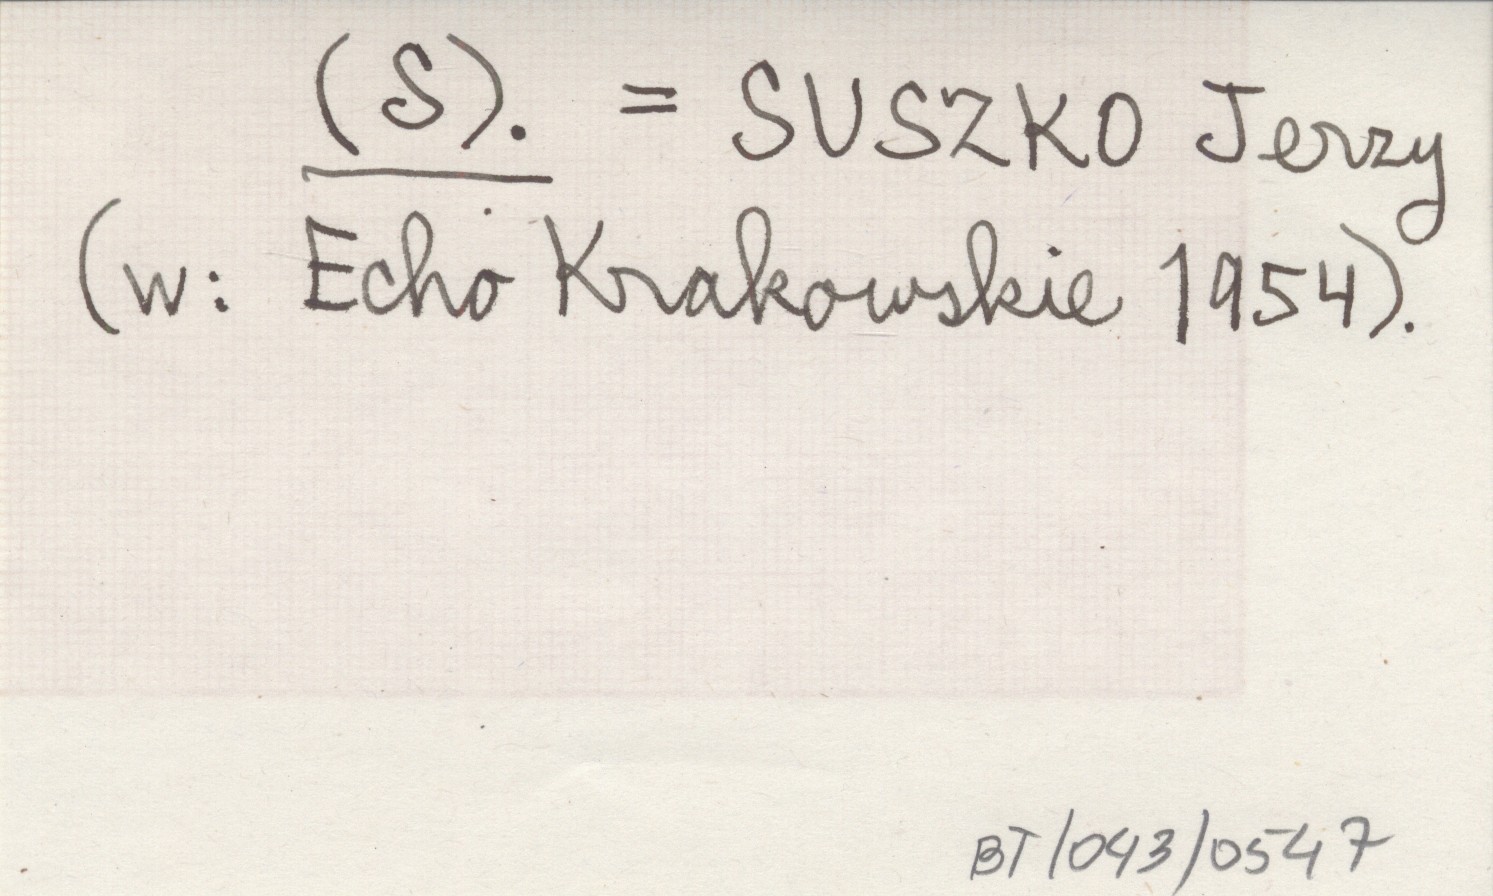 (S). = SUSZKO Jerzy
(w: Echo Krakowskie 1954).
BT/043/0547